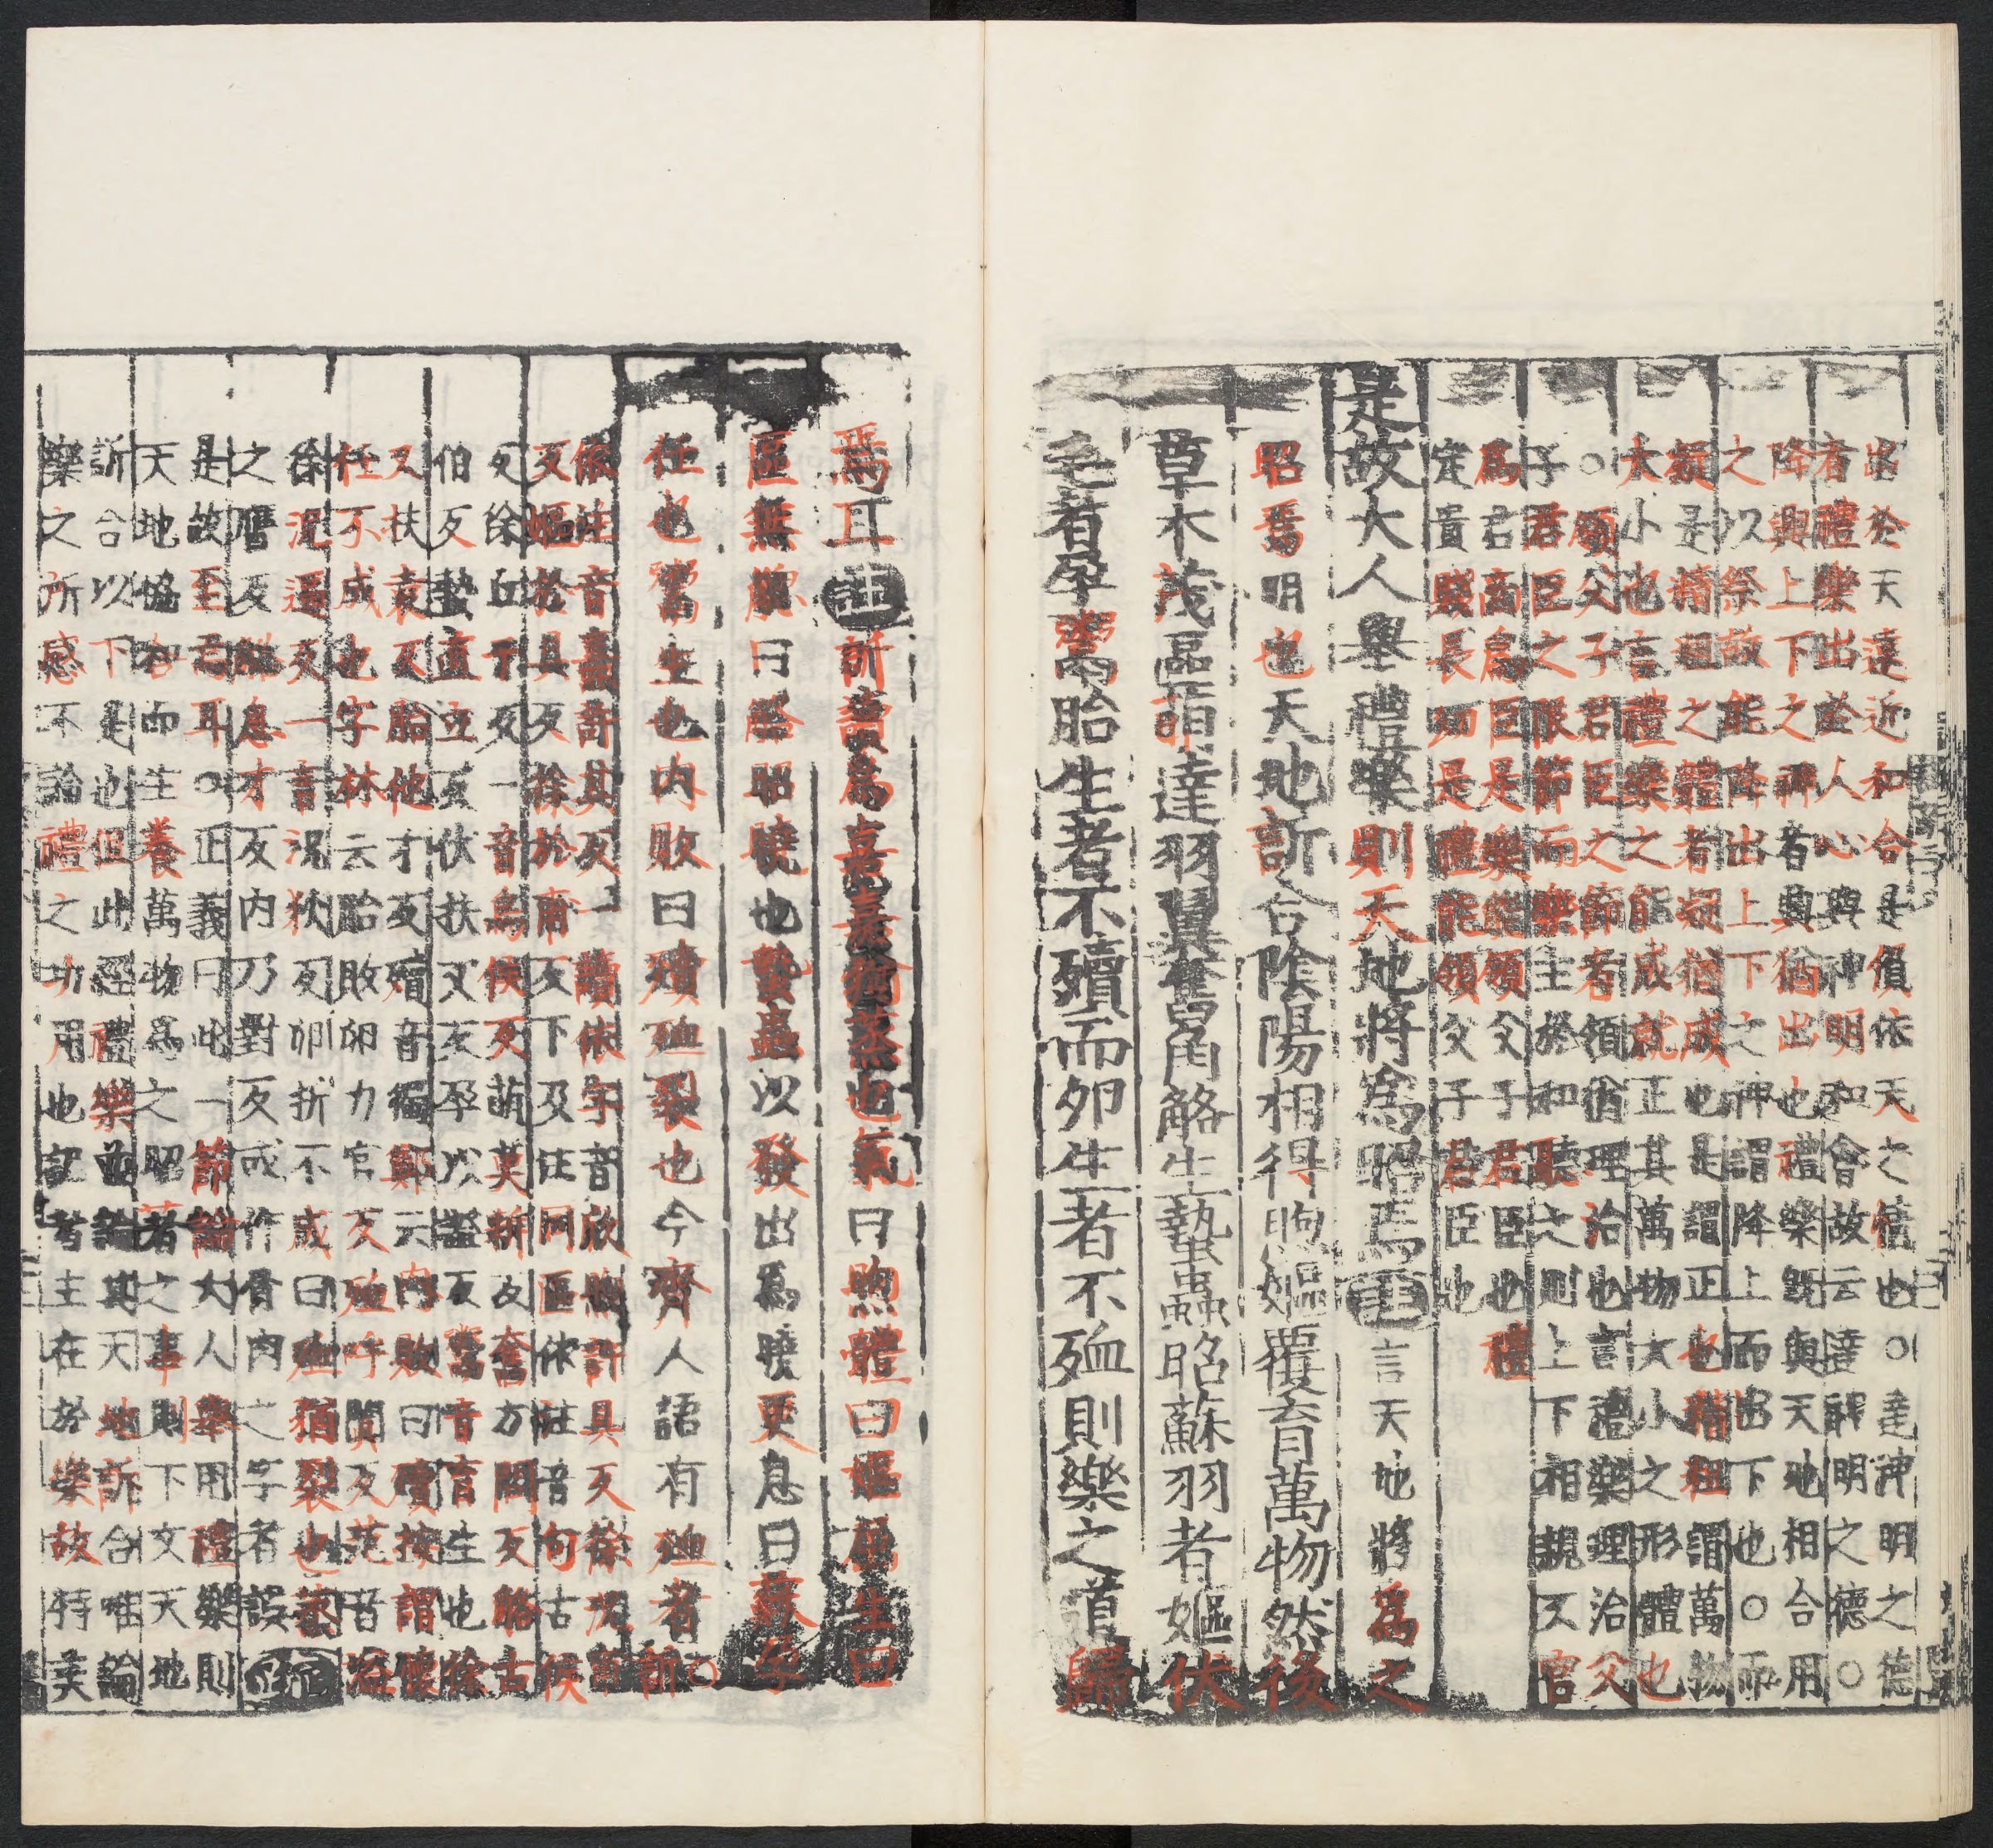 出於天遠近和合是傎依天之情也○達神明之德
者禮樂出於人心與神明和會故云達神明之德○
降興上下之神者興猶出也禮樂旣與天地相合用
之以祭故能降出上下之神謂降上而出下也○而
凝是精粗之體者凝猶成也是謂正也精粗謂萬物
大小也言禮樂之能成就正其萬物大小之形體也
○領父子君臣之節者領猶理治也言禮樂理治父
子君臣之限節而樂主於和聽之則上下相親又宫
爲君商爲臣是樂能領父子君臣也禮
定貴賤長幼是禮能領父子君臣也
是故大人舉禮樂則天地將爲昭焉 言天地將爲之
昭焉明也天地訢合陰陽相得煦嫗覆育萬物然後
草木茂區萌達羽翼奮角觡生蟄蟲昭蘇羽者嫗伏
毛者孕鬻胎生者不殰而卵生者不殈則樂之道歸
焉耳注訢讀爲熹熹猶蒸也氣曰煦體曰嫗屈生曰
區無䚡曰觡昭曉也蟄蟲以發出爲曉更息曰蘇孕
任也鬻生也内敗曰殰殈裂也今齊人語有殈者○訢
依注音熹許其反一讀依字音欣煦許具反徐况甫
反嫗於具反徐於甫反下及注同區依注音句古候
反徐丘于反一音烏侯反萌莫耕反奮方問反觡古
伯反蟄直立反伏扶又反孕以證反鬻音育生也徐
又扶袁反胎他才反殰音獨鄭云内敗曰殰按謂懷
任不成也字林云胎敗卵力官反殈呼闃反范音溢
徐况逼反一音况狄反卵坼不成曰殈猶裂也蒸
之譍反䚡息才反内乃對反或作骨肉之字者誤疏
是故至焉耳○正義曰此一節論大人舉用禮樂則
天地協和而生養萬物爲之昭著之事則下文天地
訢合以下是也但此經禮樂並論其天地訢合唯論
樂之所感不論禮之功用也記者主在於樂故特美